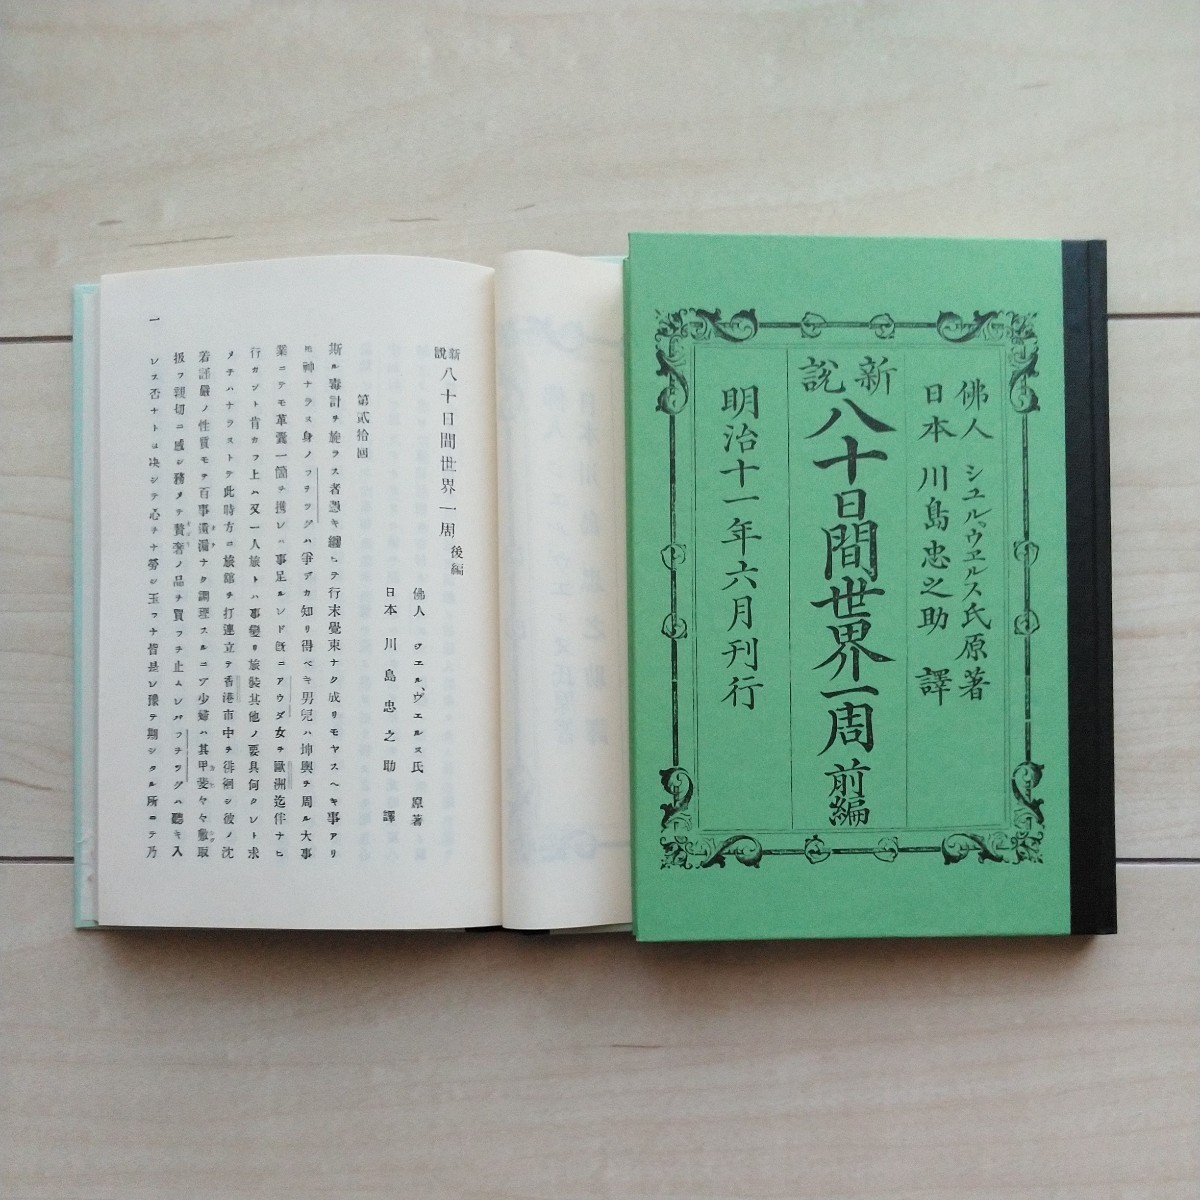 佛人 シユル、ウヱルス氏 原著
日本 川島忠之助 譯
新説 八十日間世界一周 前編
明治十一年六月刊行
新説 八十日間世界一周 後編
佛人 ヴェルス氏 原著
日本 川島忠之助 譯
第貳拾回
斯ル審計ヲ施ラス者憑キ纏ヒテ行末覺束ナク成リモヤスヘキ事アリ
神ナラス身ノフヲッグハ爭アカ知リ得ベキ男兒ハ坤輿ヲ周ル大事
業ニテモ革嚢一箇ヲ携レハ事足ルンド既ニアウダ女ヲ歐洲迄伴ナヒ
行ガント肯カフ上ハ又一人旅トハ事變リ旅裝其他ノ要具何クレト求
メヂハナラストテ此時方ニ旅舘ヲ打連立テ香港市中ヲ徘徊シ彼ノ沈
着謹嚴ノ性質モテ百事遺漏ナク調理スルニゾ少婦ハ其甲斐々々敷取
扱フ親切ニ感シ務メテ贅奢ノ品ヲ買フヲ止ムレバフヲッグハ聽キ入
レス否ナトヨ决シテ心ヲナ勞シ玉フナ皆是レ豫テ期シタル所ニテ乃
一